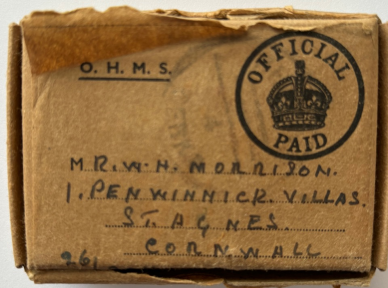 O. H. M. S.
OFFICIAL
PAID
MR. W. H. MORRISON.
1. PENWINNICK. VILLAS.
ST. AGNES.
CORNWALL
961